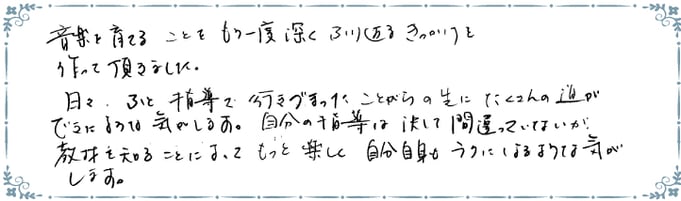 音楽を育てることをもう一度深くふり返るきっかけを
作って頂きました。
日々、ふと指導で行きづまったことがらの先にたくさんの道が
できたような気がします。自分の指導は決して間違っていないが、
教材を知ることによってもっと楽しく自分自身もラクになるような気が
します。